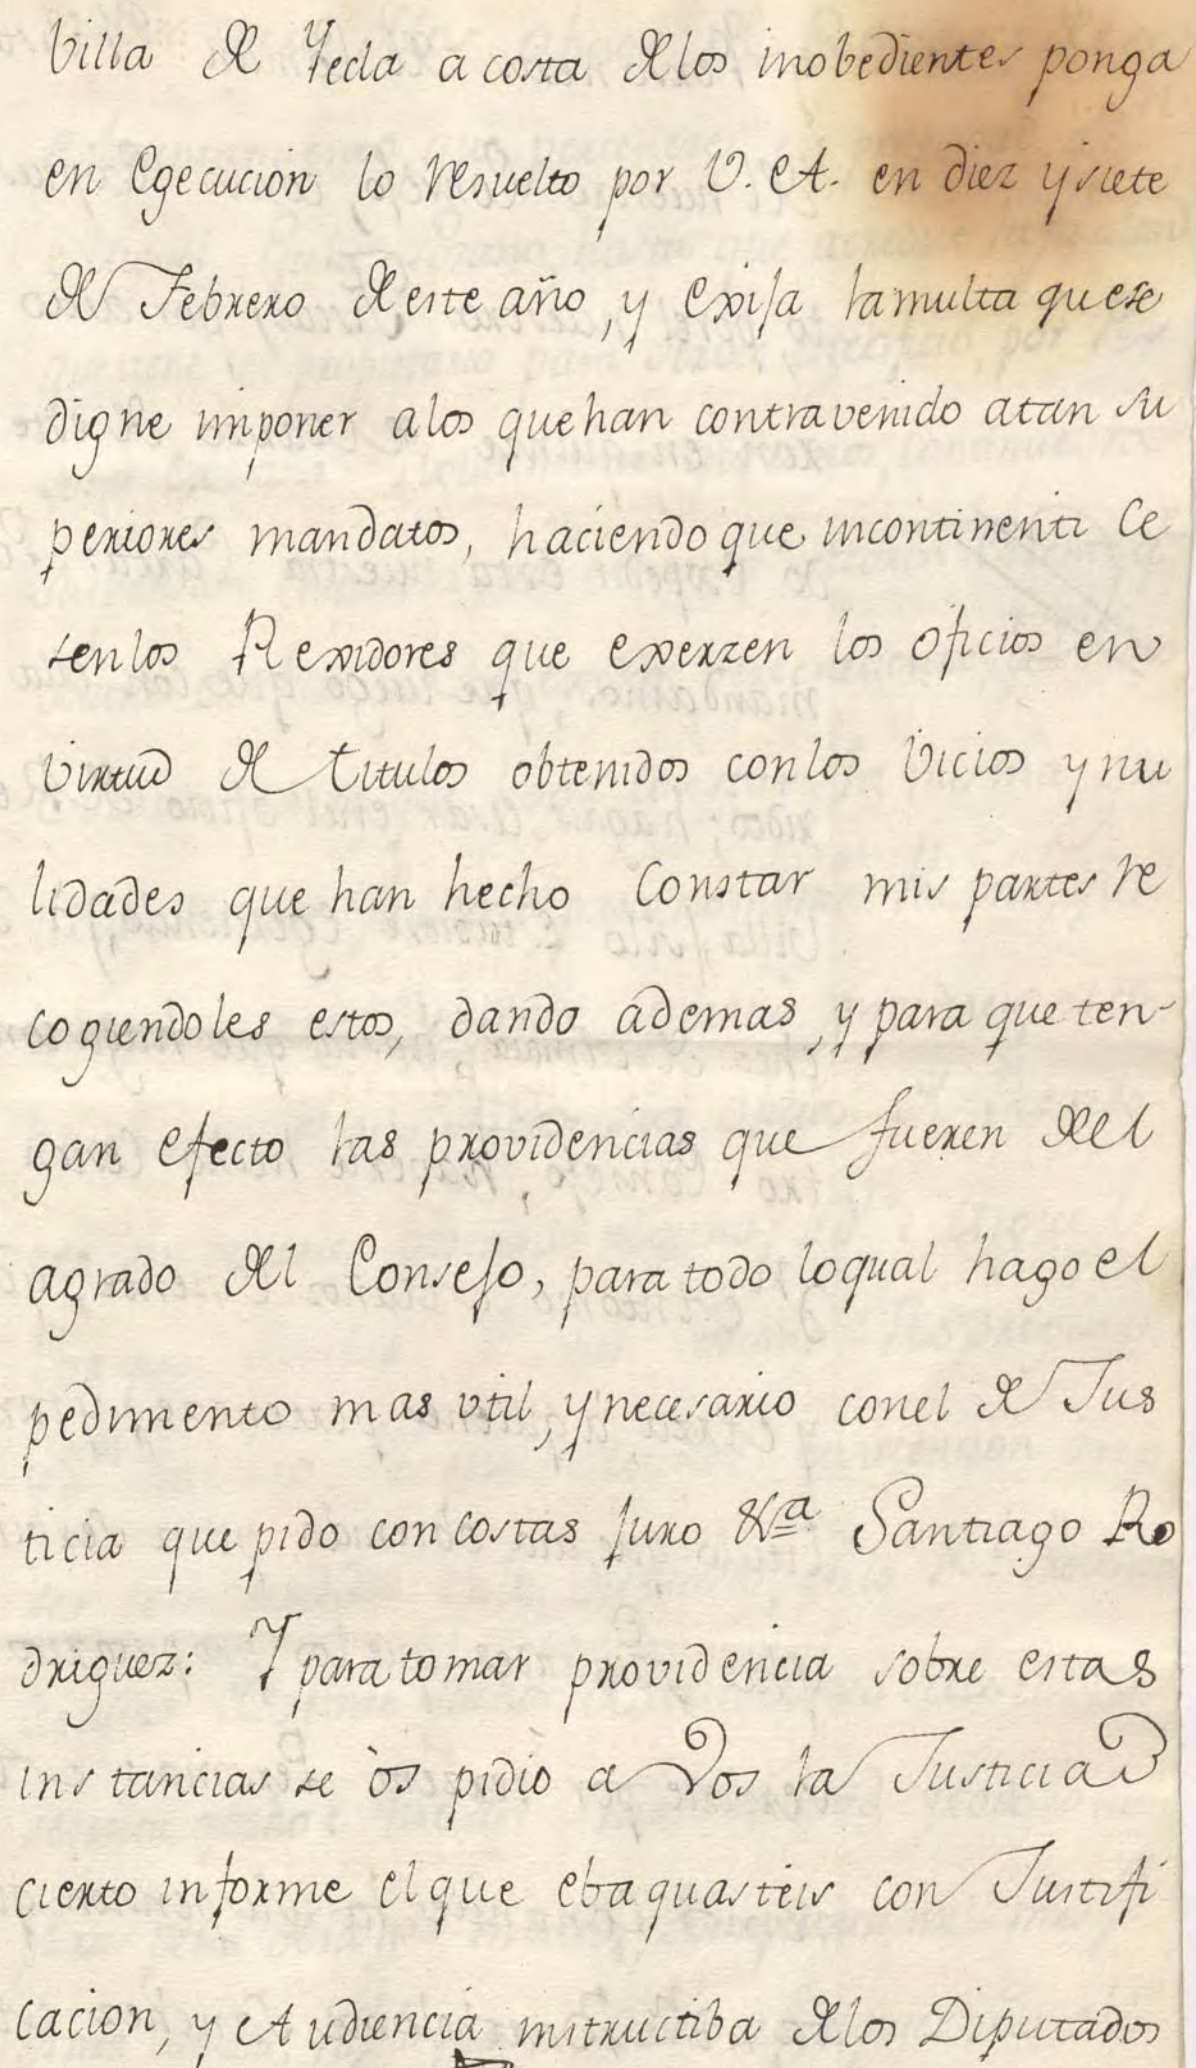 Villa de Yecla a costa delos inobedientes ponga
en Egecucion lo resuelto por V. A. en diez y siete
de Febrero de este año, y Exija la multa que se
digne imponer a los que han contravenido atan su
periores mandatos, haciendo que incontinenti Ce
sen los Rexidores que exerzen los oficios en
virtud de titulos obtenidos con los Vicios y nu
lidades que han hecho Constar mis partes re
cogiendoles estos, dando ademas, y para que ten-
gan efecto las providencias que fueren del
agrado del Consejo, para todo lo qual hago el
pedimento mas vtil, y necesario con el de Jus
ticia que pido con costas Juro &ª Santiago Ro
driguez: Y para tomar providencia sobre estas
instancias se òs pidiò a Vos la Justicia
cierto informe el que ebaquasteis con Justifi
cacion, y Audiencia instructiba delos Diputados